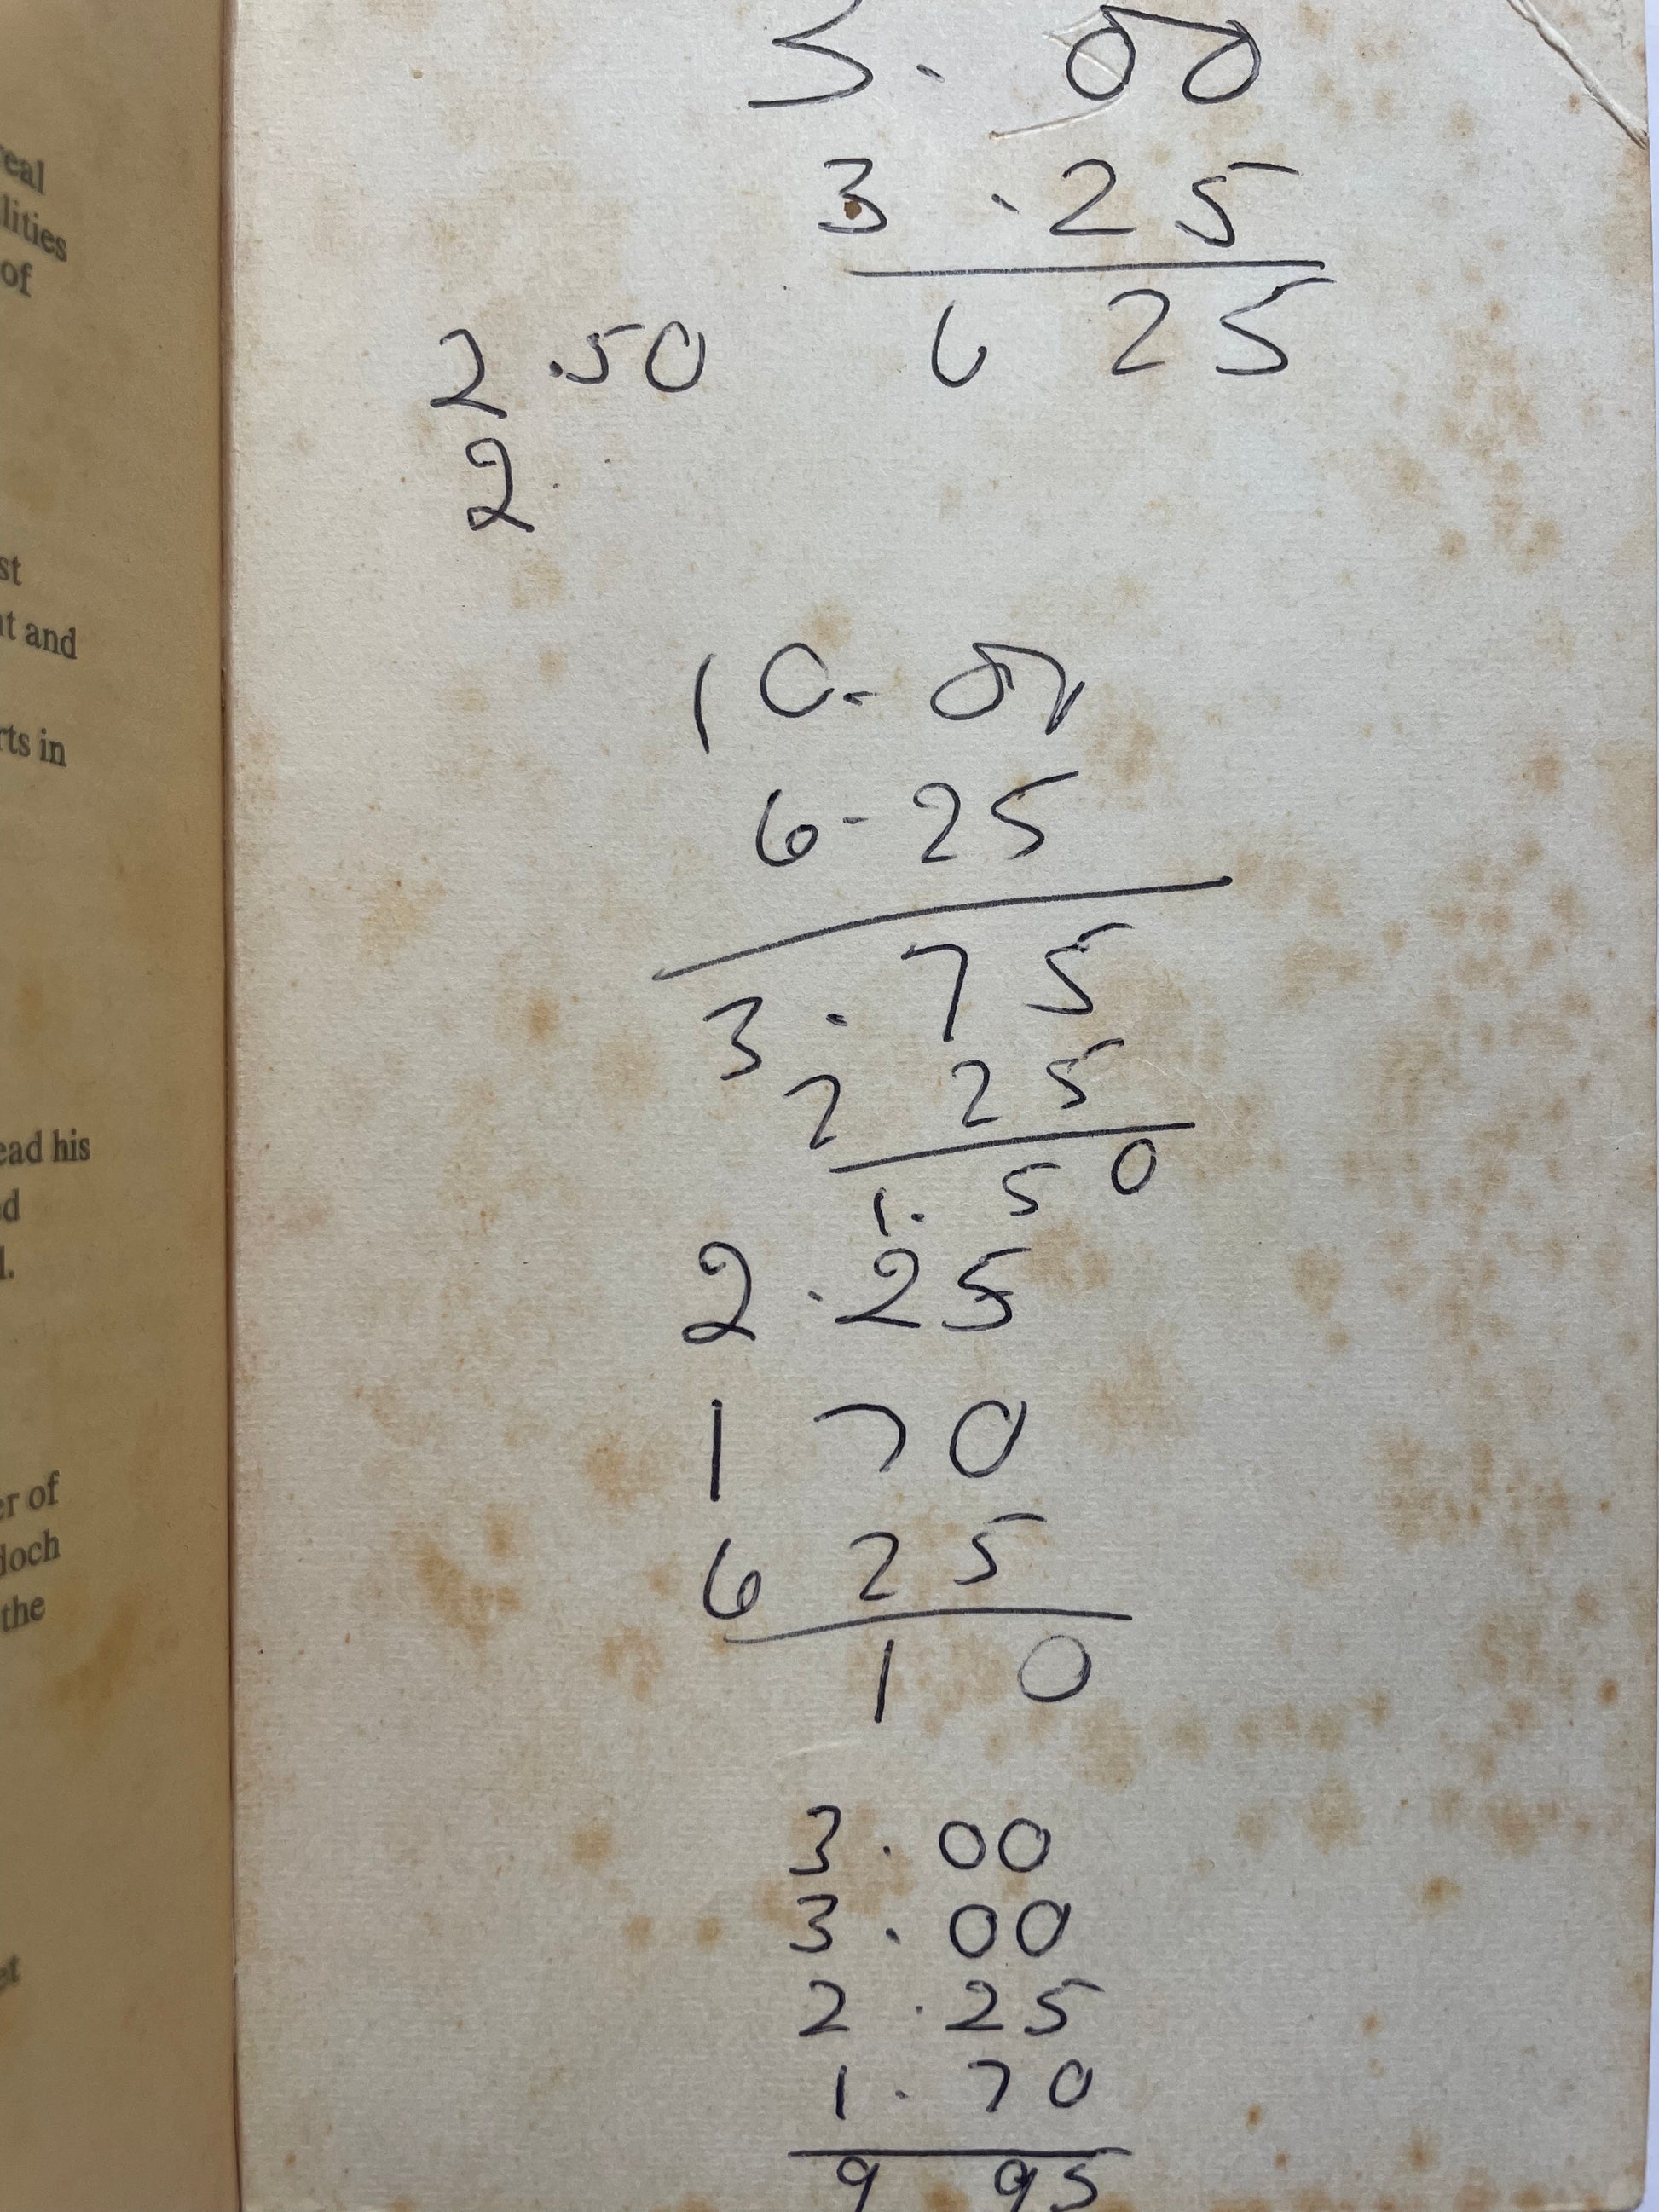 real
lities
of
st
nt and
rts in
ead his
d
l.
er of
doch
the
et
3. 00
3 .25
6 25
2 .50
2
10. 00
6. 25
3 . 75
2 25
1. 50
2 .25
1 70
6 25
1 0
3 . 00
3 . 00
2 . 25
1 . 70
9 95